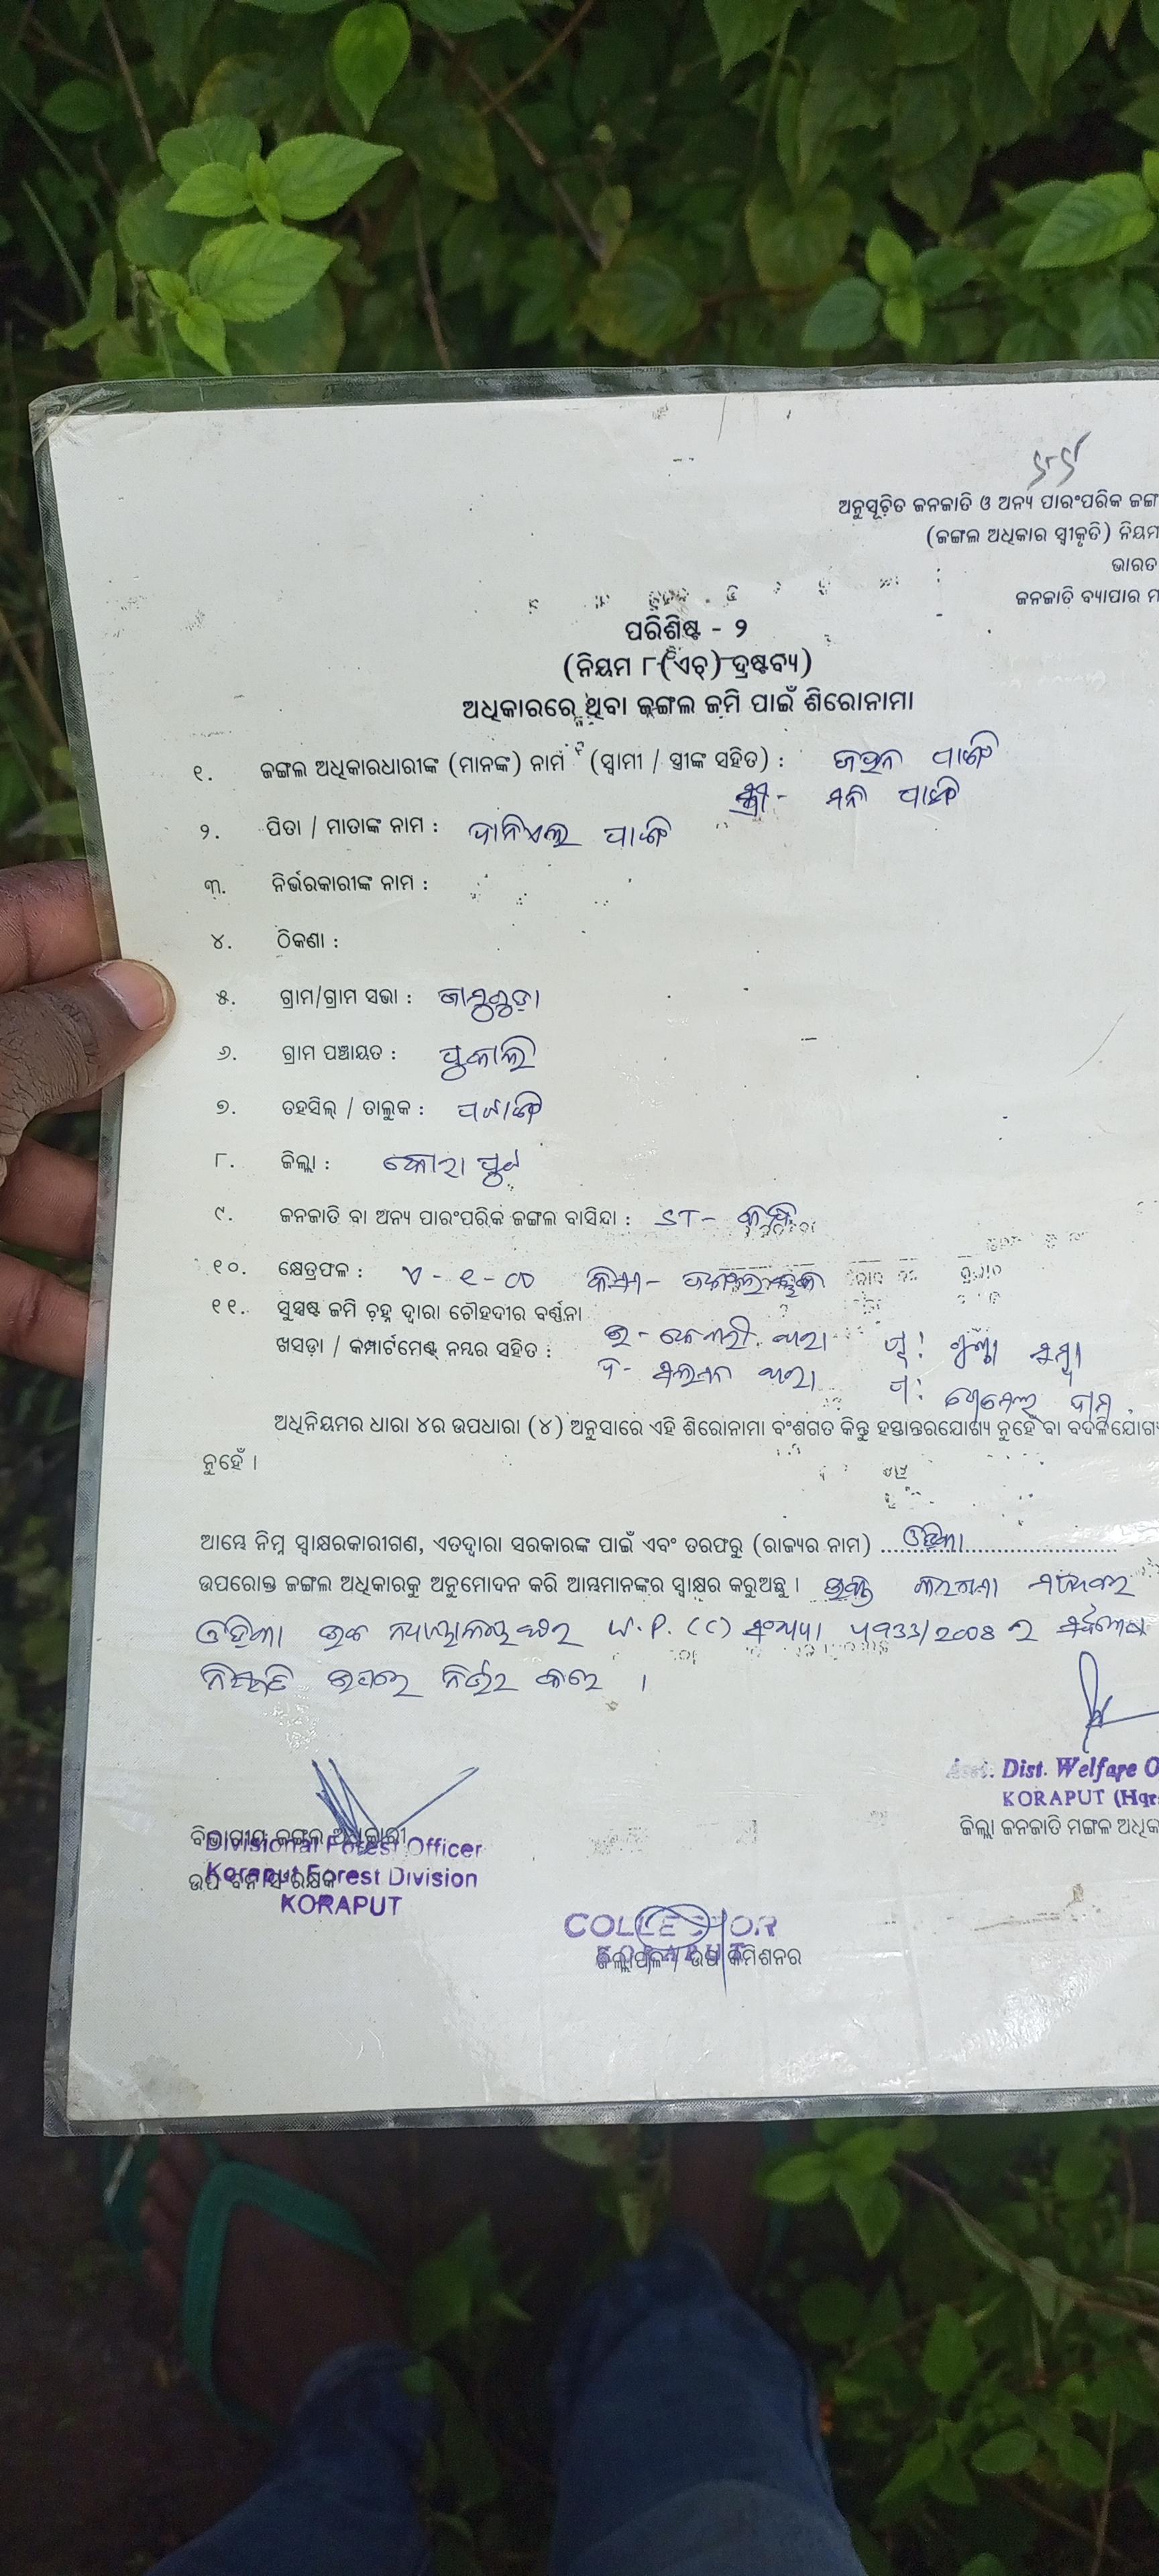 ଅନୁସୂଚିତ ଜନଜାତି ଓ ଅନ୍ୟ ପାରଂପରିକ ଜଙ୍ଗ
(ଜଙ୍ଗଲ ଅଧିକାର ସ୍ୱୀକୃତି) ନିୟମ
ଭାରତ
ଜନଜାତି ବ୍ୟାପାର ମ
ପରିଶିଷ୍ଟ - ୨
(ନିୟମ ୮ (ଏଚ୍) ଦ୍ରଷ୍ଟବ୍ୟ)
ଅଧିକାରରେ ଥିବା ଜଙ୍ଗଲ ଜମି ପାଇଁ ଶିରୋନାମା
୧. ଜଙ୍ଗଲ ଅଧିକାରଧାରୀଙ୍କ (ମାନଙ୍କ) ନାମ (ସ୍ୱାମୀ / ସ୍ତ୍ରୀଙ୍କ ସହିତ) : ପାଙ୍ଗି
ସ୍ତ୍ରୀ - ମନି ପାଙ୍ଗି
୨. ପିତା / ମାତାଙ୍କ ନାମ : ଦାନିଏଲ ପାଙ୍ଗି
୩. ନିର୍ଭରକାରୀଙ୍କ ନାମ :
୪. ଠିକଣା :
୫. ଗ୍ରାମ/ଗ୍ରାମ ସଭା : ଜାମୁଗୁଡ଼ା
୬. ଗ୍ରାମ ପଞ୍ଚାୟତ :
୭. ତହସିଲ୍ / ତାଲୁକ : ପଟାଙ୍ଗି
୮. ଜିଲ୍ଲା : କୋରାପୁଟ
୯. ଜନଜାତି ବା ଅନ୍ୟ ପାରଂପରିକ ଜଙ୍ଗଲ ବାସିନ୍ଦା : ST -
୧୦. କ୍ଷେତ୍ରଫଳ : କିସମ -
୧୧. ସୁସ୍ପଷ୍ଟ ଜମି ଚିହ୍ନ ଦ୍ୱାରା ଚୌହଦୀର ବର୍ଣ୍ଣନା
ଖସଡ଼ା / କମ୍ପାର୍ଟମେଣ୍ଟ ନମ୍ବର ସହିତ : ଉ - ପୂ :
ଦ - ପ :
ଅଧିନିୟମର ଧାରା ୪ର ଉପଧାରା (୪) ଅନୁସାରେ ଏହି ଶିରୋନାମା ବଂଶଗତ କିନ୍ତୁ ହସ୍ତାନ୍ତରଯୋଗ୍ୟ ନୁହେଁ ବା ବଦଳିଯୋଗ୍ୟ
ନୁହେଁ ।
ଆମ୍ଭେ ନିମ୍ନ ସ୍ୱାକ୍ଷରକାରୀଗଣ, ଏତଦ୍ୱାରା ସରକାରଙ୍କ ପାଇଁ ଏବଂ ତରଫରୁ (ରାଜ୍ୟର ନାମ) ଓଡ଼ିଶା
ଉପରୋକ୍ତ ଜଙ୍ଗଲ ଅଧିକାରକୁ ଅନୁମୋଦନ କରି ଆମ୍ଭମାନଙ୍କର ସ୍ୱାକ୍ଷର କରୁଅଛୁ । ଉକ୍ତ
ଓଡ଼ିଶା ଉଚ୍ଚ W.P. (C) ସଂଖ୍ୟା ର
ନିଷ୍ପତ୍ତି ଉପରେ ନିର୍ଭର କରେ ।
Asst. Dist. Welfare O
KORAPUT (Hqr
ଜିଲ୍ଲା ଜନଜାତି ମଙ୍ଗଳ ଅଧିକ
ବିଭାଗୀୟ ଜଙ୍ଗଲ ଅଧିକାରୀ
Divisional Forest Officer
ଉପ ବନ ସଂରକ୍ଷକ
Koraput Forest Division
KORAPUT
COLLECTOR
KORAPUT
ଜିଲ୍ଲାପାଳ / ଉପ କମିଶନର